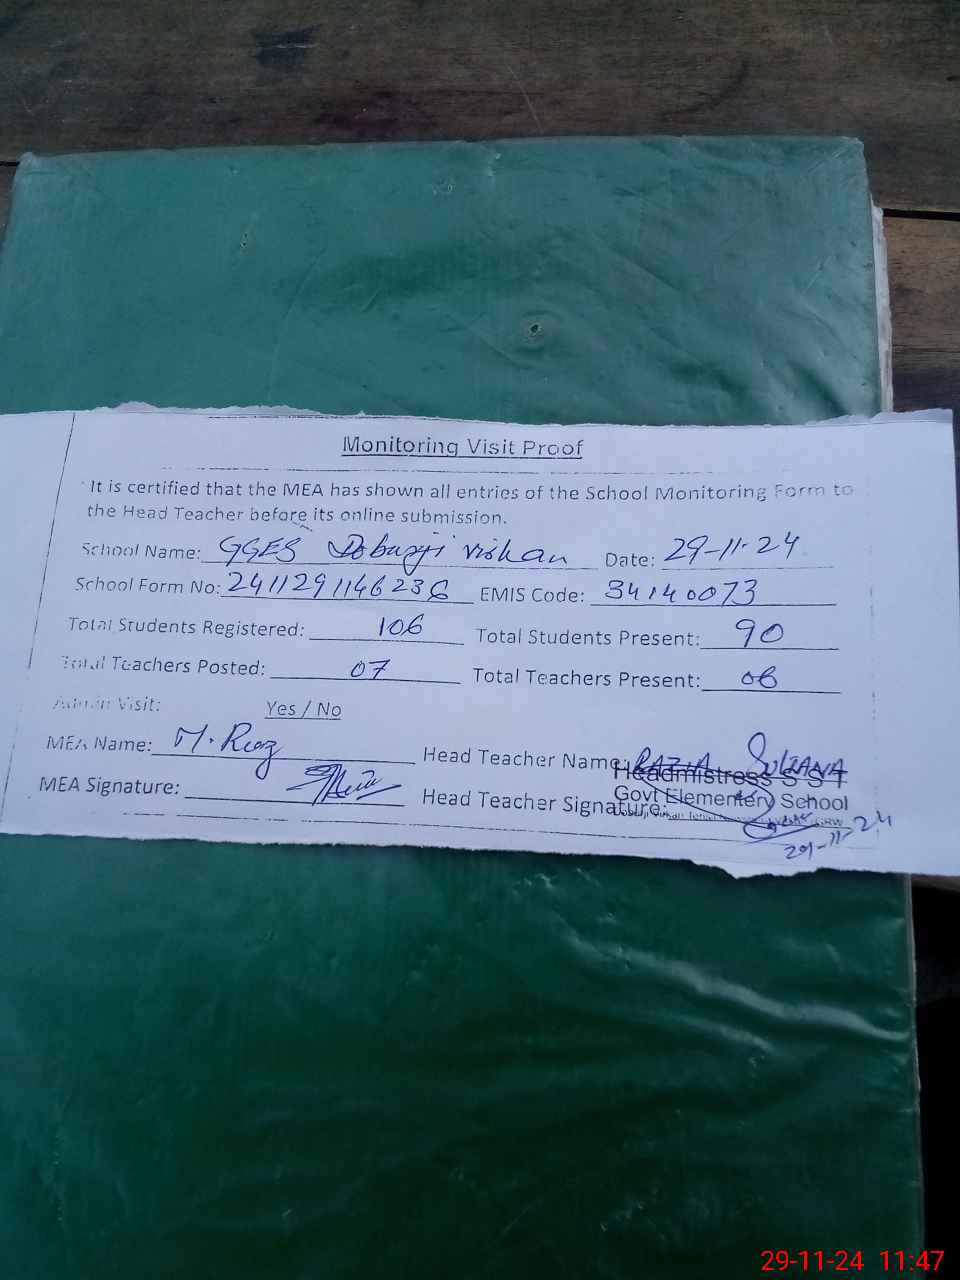 Monitoring Visit Proof
It is certified that the MEA has shown all entries of the School Monitoring Form to
the Head Teacher before its online submission.
School Name: GGES Doburji Virkan Date: 29-11-24
School Form No: 2411291146236 EMIS Code: 34140073
Total Students Registered: 106 Total Students Present: 90
Total Teachers Posted: 07 Total Teachers Present: 06
Admin Visit: Yes / No
MEA Name: M. Riaz Head Teacher Name: RAZIA SULTANA
Headmistress S S T
Govt Elementery School
MEA Signature: Head Teacher Signature:
29-11-24
29-11-24 11:47